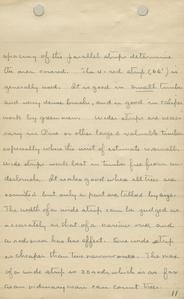 spacing of the parallel strips determine
the area covered. The 4-rod strip (66') is
generally used. It is good in small timber
and very dense brush, and is good in cheaper
work by green men. Wider strips are neces-
sary in close or other large & valuable timber
especially when the unit of estimate is small.
Wide strips work best in timber free from un-
derbrush. It makes good when all trees are
counted but only a part are tallied by age.
The width of a wide strip can be judged as
accurately as that of a narrow one and
a rodman has less effect. One wide strip
is cheaper than two narrow ones. The max
of a wide strip is 20 rods which is as far
as an ordinary man can count trees.
11